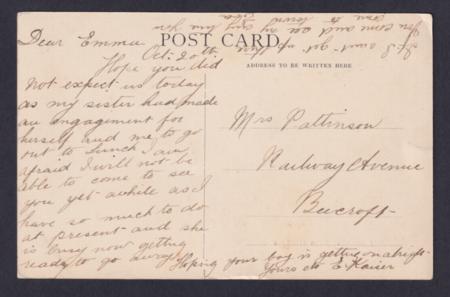 POST CARD
ADDRESS TO BE WRITTEN HERE
Dear Emma
Oct. 20th
Hope you did
not expect us today
as my sister had made
an engagement for
herself and me to go
out to lunch I am
afraid I will not be
able to come to see
you yet awhile as I
have so much to do
at present and she
is busy now getting
ready to go away
Hoping your boy is getting on alright
Yours etc E Kaiser
Mrs Pattinson
Railway Avenue
Beecroft
If I cant get up
you come and see